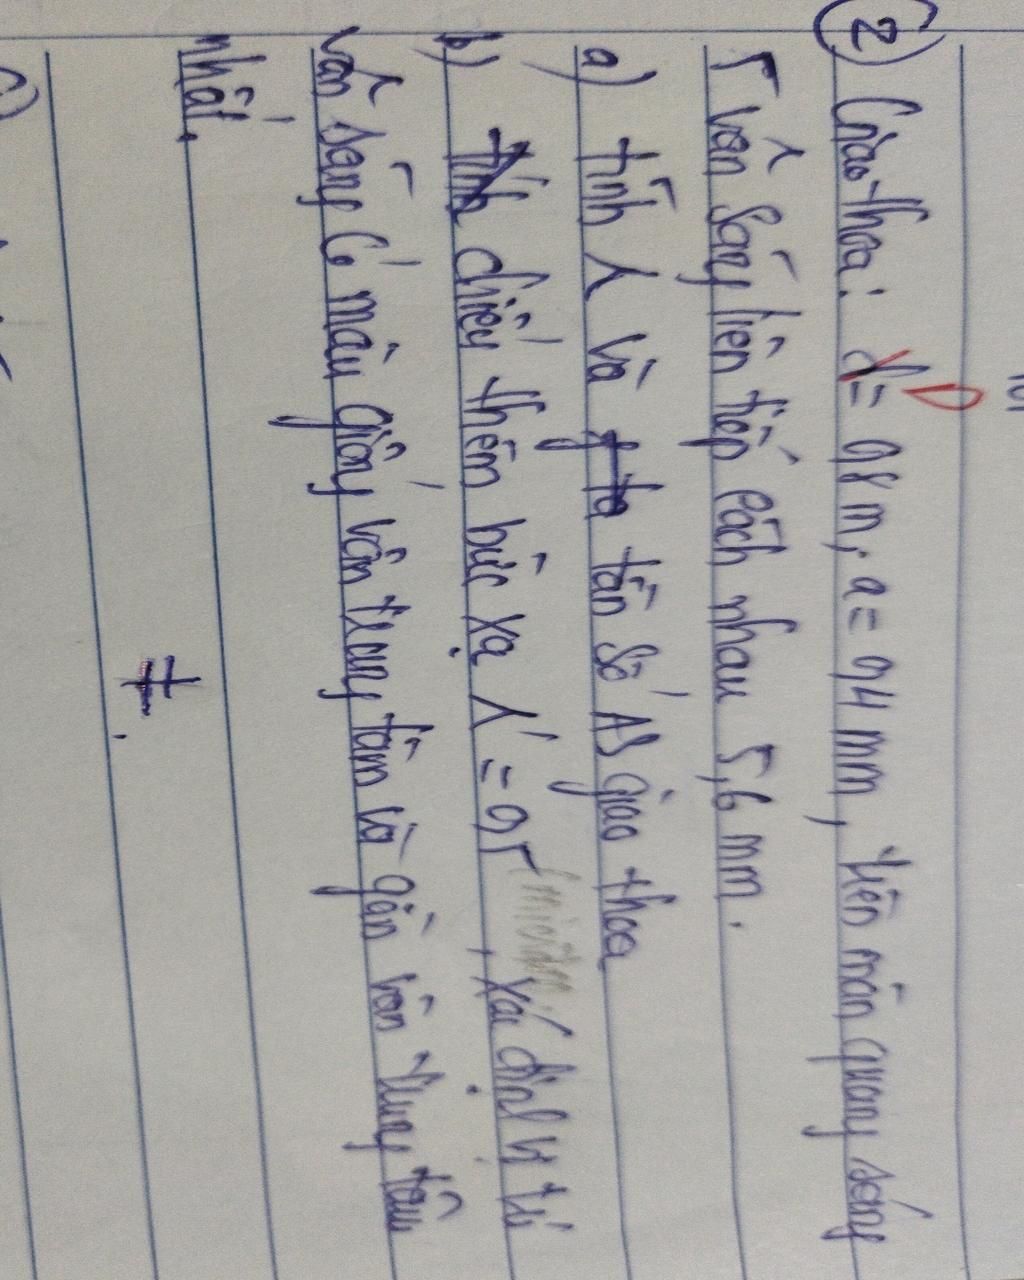 ② Giao thoa: D = 0,8 m, a = 0,4 mm, trên màn quang sáng
5 vân sáng liên tiếp cách nhau 5,6 mm.
a) tính λ và tần số AS giao thoa
b) chiếu thêm bức xạ λ' = 0,5 (micromet), xác định vị trí
vân sáng có màu giống vân trung tâm và gần vân trung tâm
nhất.